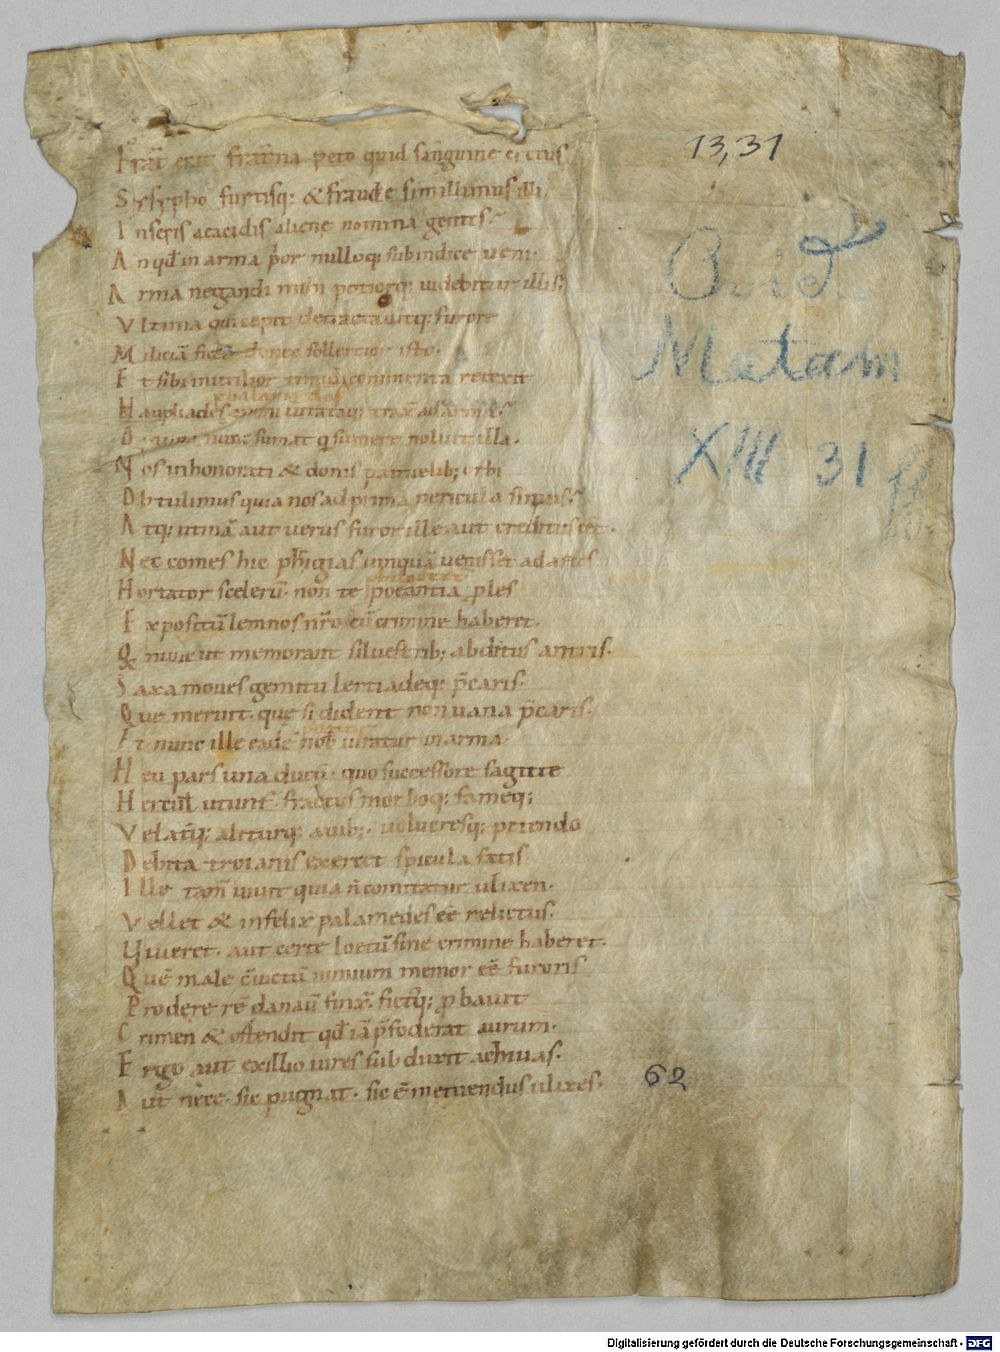 Frat̄ erit frat̄na peto quid sanguine cretus
13,31
Sysypho furtisq; & fraude simillimus illi
Inseris aeacidis aliene nomina gentis
An qđ in arma p̄or nulloq; sub indice ueni
Arma negandi mihi potiorq; uidebitur illis;
Ovid
Vltima qui cepit detractauitq; furore
Metam
Miliciā ficto donec sollertior isto.
Et sibi inutilior timidi commenta retexit
palamedes
Naupliades animi uitataq; trax̄ ad arma
Optima nunc sumat q̄ sumere noluit illa.
XIII 31
Nos inhonorati & donis patruelib; orbi
Obtulimus quia nos ad prima pericula simus
Atq; utinā aut uerus furor ille aut creditus eēt.
Nec comes hic phrigias unquā uenisset ad arces
Hortator scelerū. non te poeantia ples
Expositū lemnos nr̄o cū crimine haberet.
Q nunc ut memorant siluestrib; abditus antris.
Saxa moues gemitu lertiadeq; p̄caris.
Que meruit. que si di dent non uana p̄caris.
Et nunc ille eadē nob̄ iuratus in arma.
Heu pars una ducū. quo successore sagitte
Hercul̄ utunt̄. fractus morboq; fameq;
Velat̄q; aliturq; auib;. uolucresq; petendo
Debita troianis exercet spicula fatis
Ille tam̄ uiuit quia ñ comitatur ulixen.
Vellet & infelix palamedes eē relictus.
Viueret. aut certe loetū sine crimine haberet.
Quē male c̄uictū nimium memor iste furoris
Prodere rē danaū finx̄. fictūq; ꝓbauit
Crimen & ostendit qđ iā p̄foderat aurum.
Ergo aut exilio uires subduxit achiuas.
Aut nece. sic pugnat. sic ē metuendus ulixes.
62
Digitalisierung gefördert durch die Deutsche Forschungsgemeinschaft - DFG